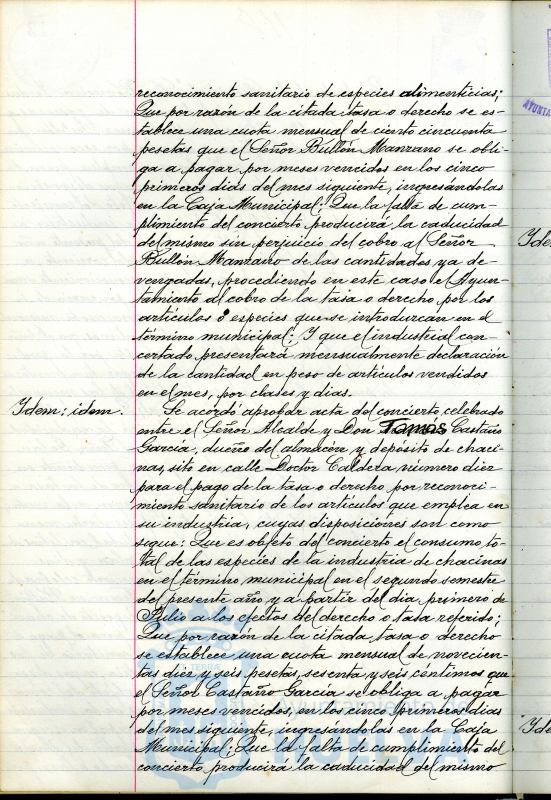 reconocimiento sanitario de especies alimenticias;
Que por razón de la citada tasa o derecho se es-
tablece una cuota mensual de ciento cincuenta
pesetas que el Señor Bullón Manzano se obli-
ga a pagar por meses vencidos en los cinco
primeros dias del mes siguiente, ingresándolas
en la Caja Municipal: Que la falta de cum-
plimiento del concierto producirá la caducidad
del mismo sin perjuicio del cobro al Señor
Bullón Manzano de las cantidades ya de-
vengadas, procediendo en este caso el Ayun-
tamiento al cobro de la tasa o derecho por los
artículos o especies que se introduzcan en el
término municipal: Y que el industrial con-
certado presentará mensualmente declaración
de la cantidad en peso de artículos vendidos
en el mes, por clases y dias.
Idem: idem.
Se acordó aprobar acta del concierto celebrado
entre el Señor Alcalde y Don Tomás Castaño
García, dueño del almacén y depósito de chaci-
nas, sito en calle Doctor Caldera número diez
para el pago de la tasa o derecho por reconoci-
miento sanitario de los artículos que emplea en
su industria, cuyas disposiciones son como
sigue: Que es objeto del concierto el consumo to-
tal de las especies de la industria de chacinas
en el término municipal en el segundo semestre
del presente año y a partir del dia primero de
Julio a los efectos del derecho o tasa referido;
Que por razón de la citada tasa o derecho
se establece una cuota mensual de novecien-
tas diez y seis pesetas, sesenta y seis céntimos que
el Señor Castaño García se obliga a pagar
por meses vencidos, en los cinco primeros dias
del mes siguiente, ingresándolas en la Caja
Municipal; Que la falta de cumplimiento del
concierto producirá la caducidad del mismo